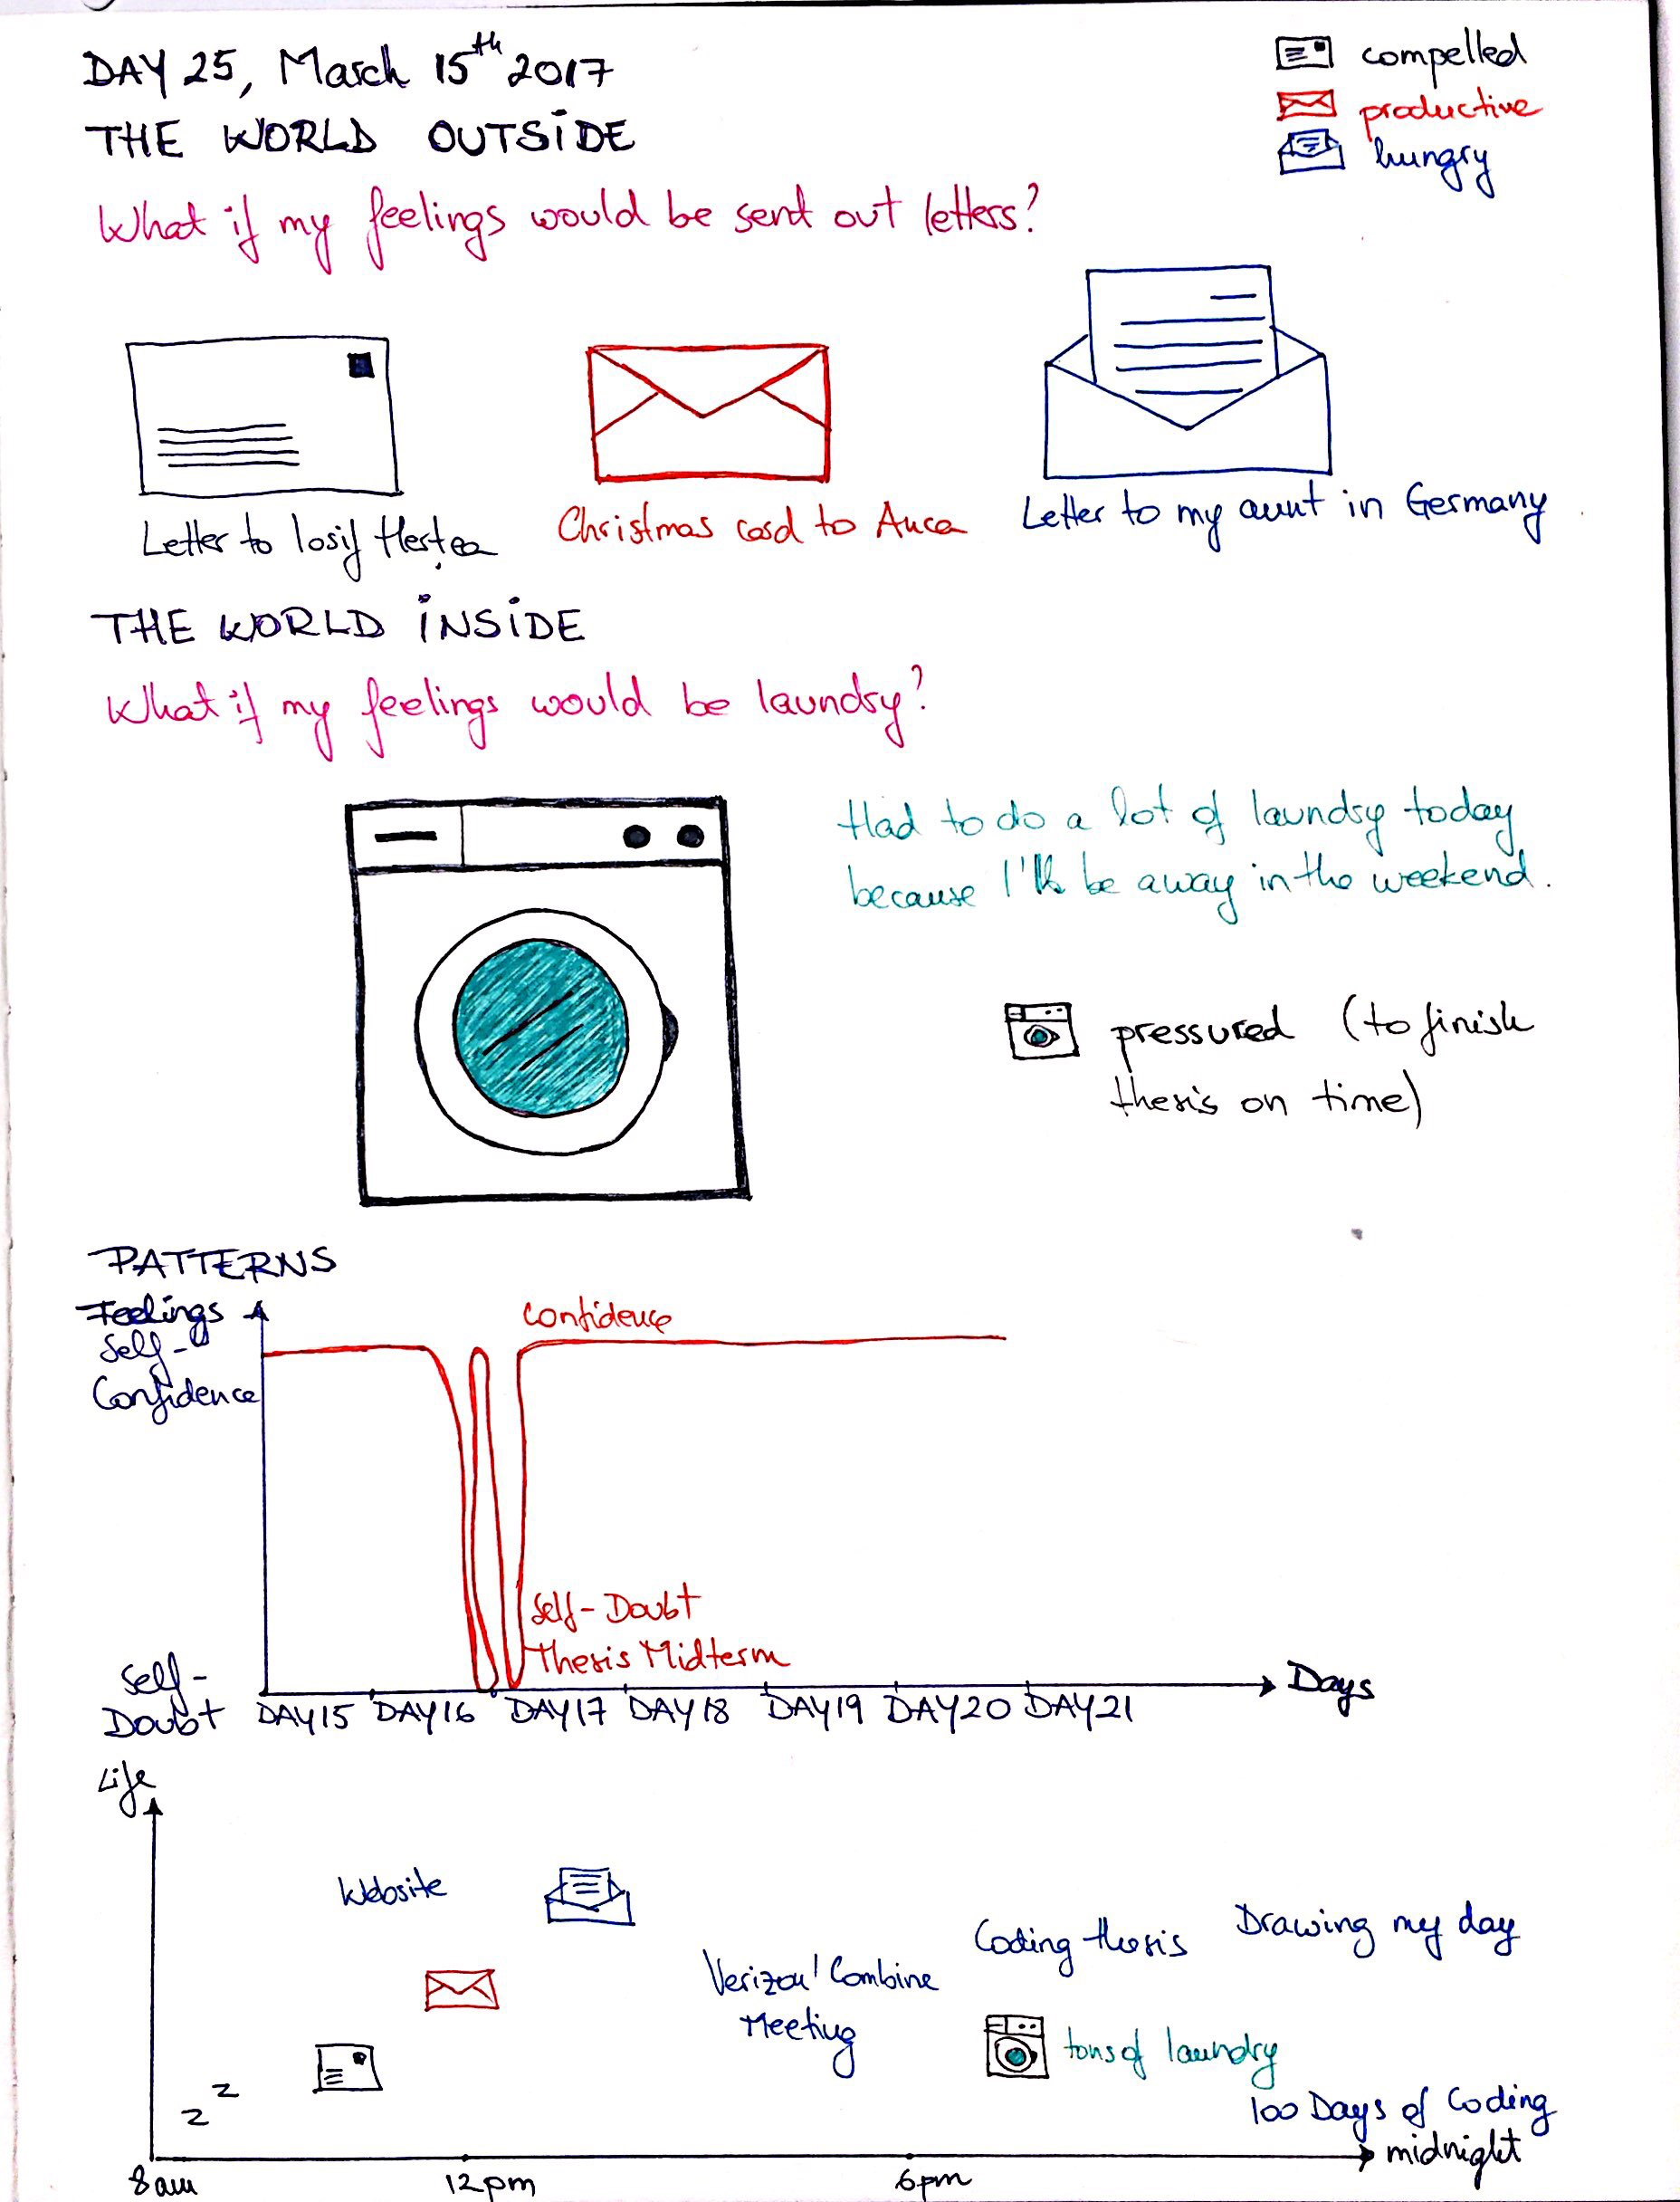 DAY 25, March 15th 2017
THE WORLD OUTSIDE
compelled
productive
hungry
What if my feelings would be sent out letters?
Letter to Iosif Herțea
Christmas card to Anca
Letter to my aunt in Germany
THE WORLD INSIDE
What if my feelings would be laundry?
Had to do a lot of laundry today
because I'll be away in the weekend.
pressured (to finish
thesis on time)
PATTERNS
Feelings
Self-
Confidence
Confidence
Self-Doubt
Thesis Midterm
Self-
Doubt
Days
DAY15 DAY16 DAY17 DAY18 DAY19 DAY20 DAY21
Life
Website
Coding thesis
Drawing my day
Verizon/Combine
Meeting
tons of laundry
z
z
100 Days of Coding
midnight
8am 12pm 6pm